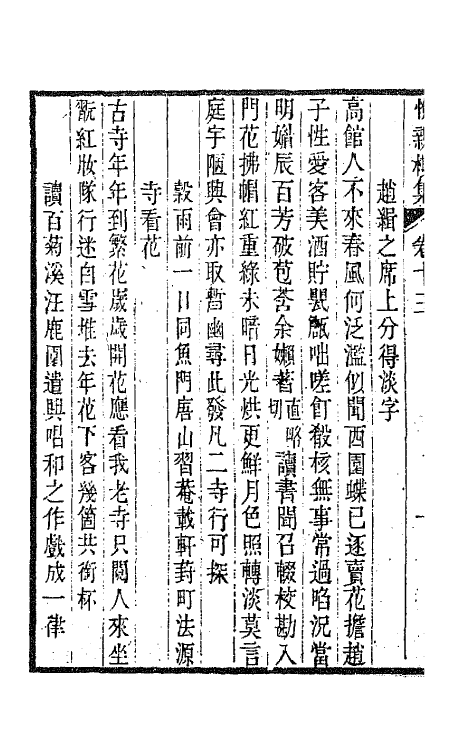 親樓集 卷十三
趙緝之席上分得淡字
高館人不來春風何泛濫似聞西園蝶已逐賣花擔趙
子性愛客美酒貯甖甔咄嗟飣殽核無事常過啗況當
明媚辰百芳破苞萏余嬾著直略切讀書聞召輟校勘入
門花拂帽紅重綠未暗日光烘更鮮月色照轉淡莫言
庭宇陋興會亦取暫幽尋此發凡二寺行可探
穀雨前一日同魚門唐山習菴載軒葑町法源
寺看花
古寺年年到繁花歲歲開花應看我老寺只閱人來坐
翫紅妝隊行迷白雪堆去年花下客幾箇共銜杯
讀百菊溪汪鹿園遣興唱和之作戲成一律